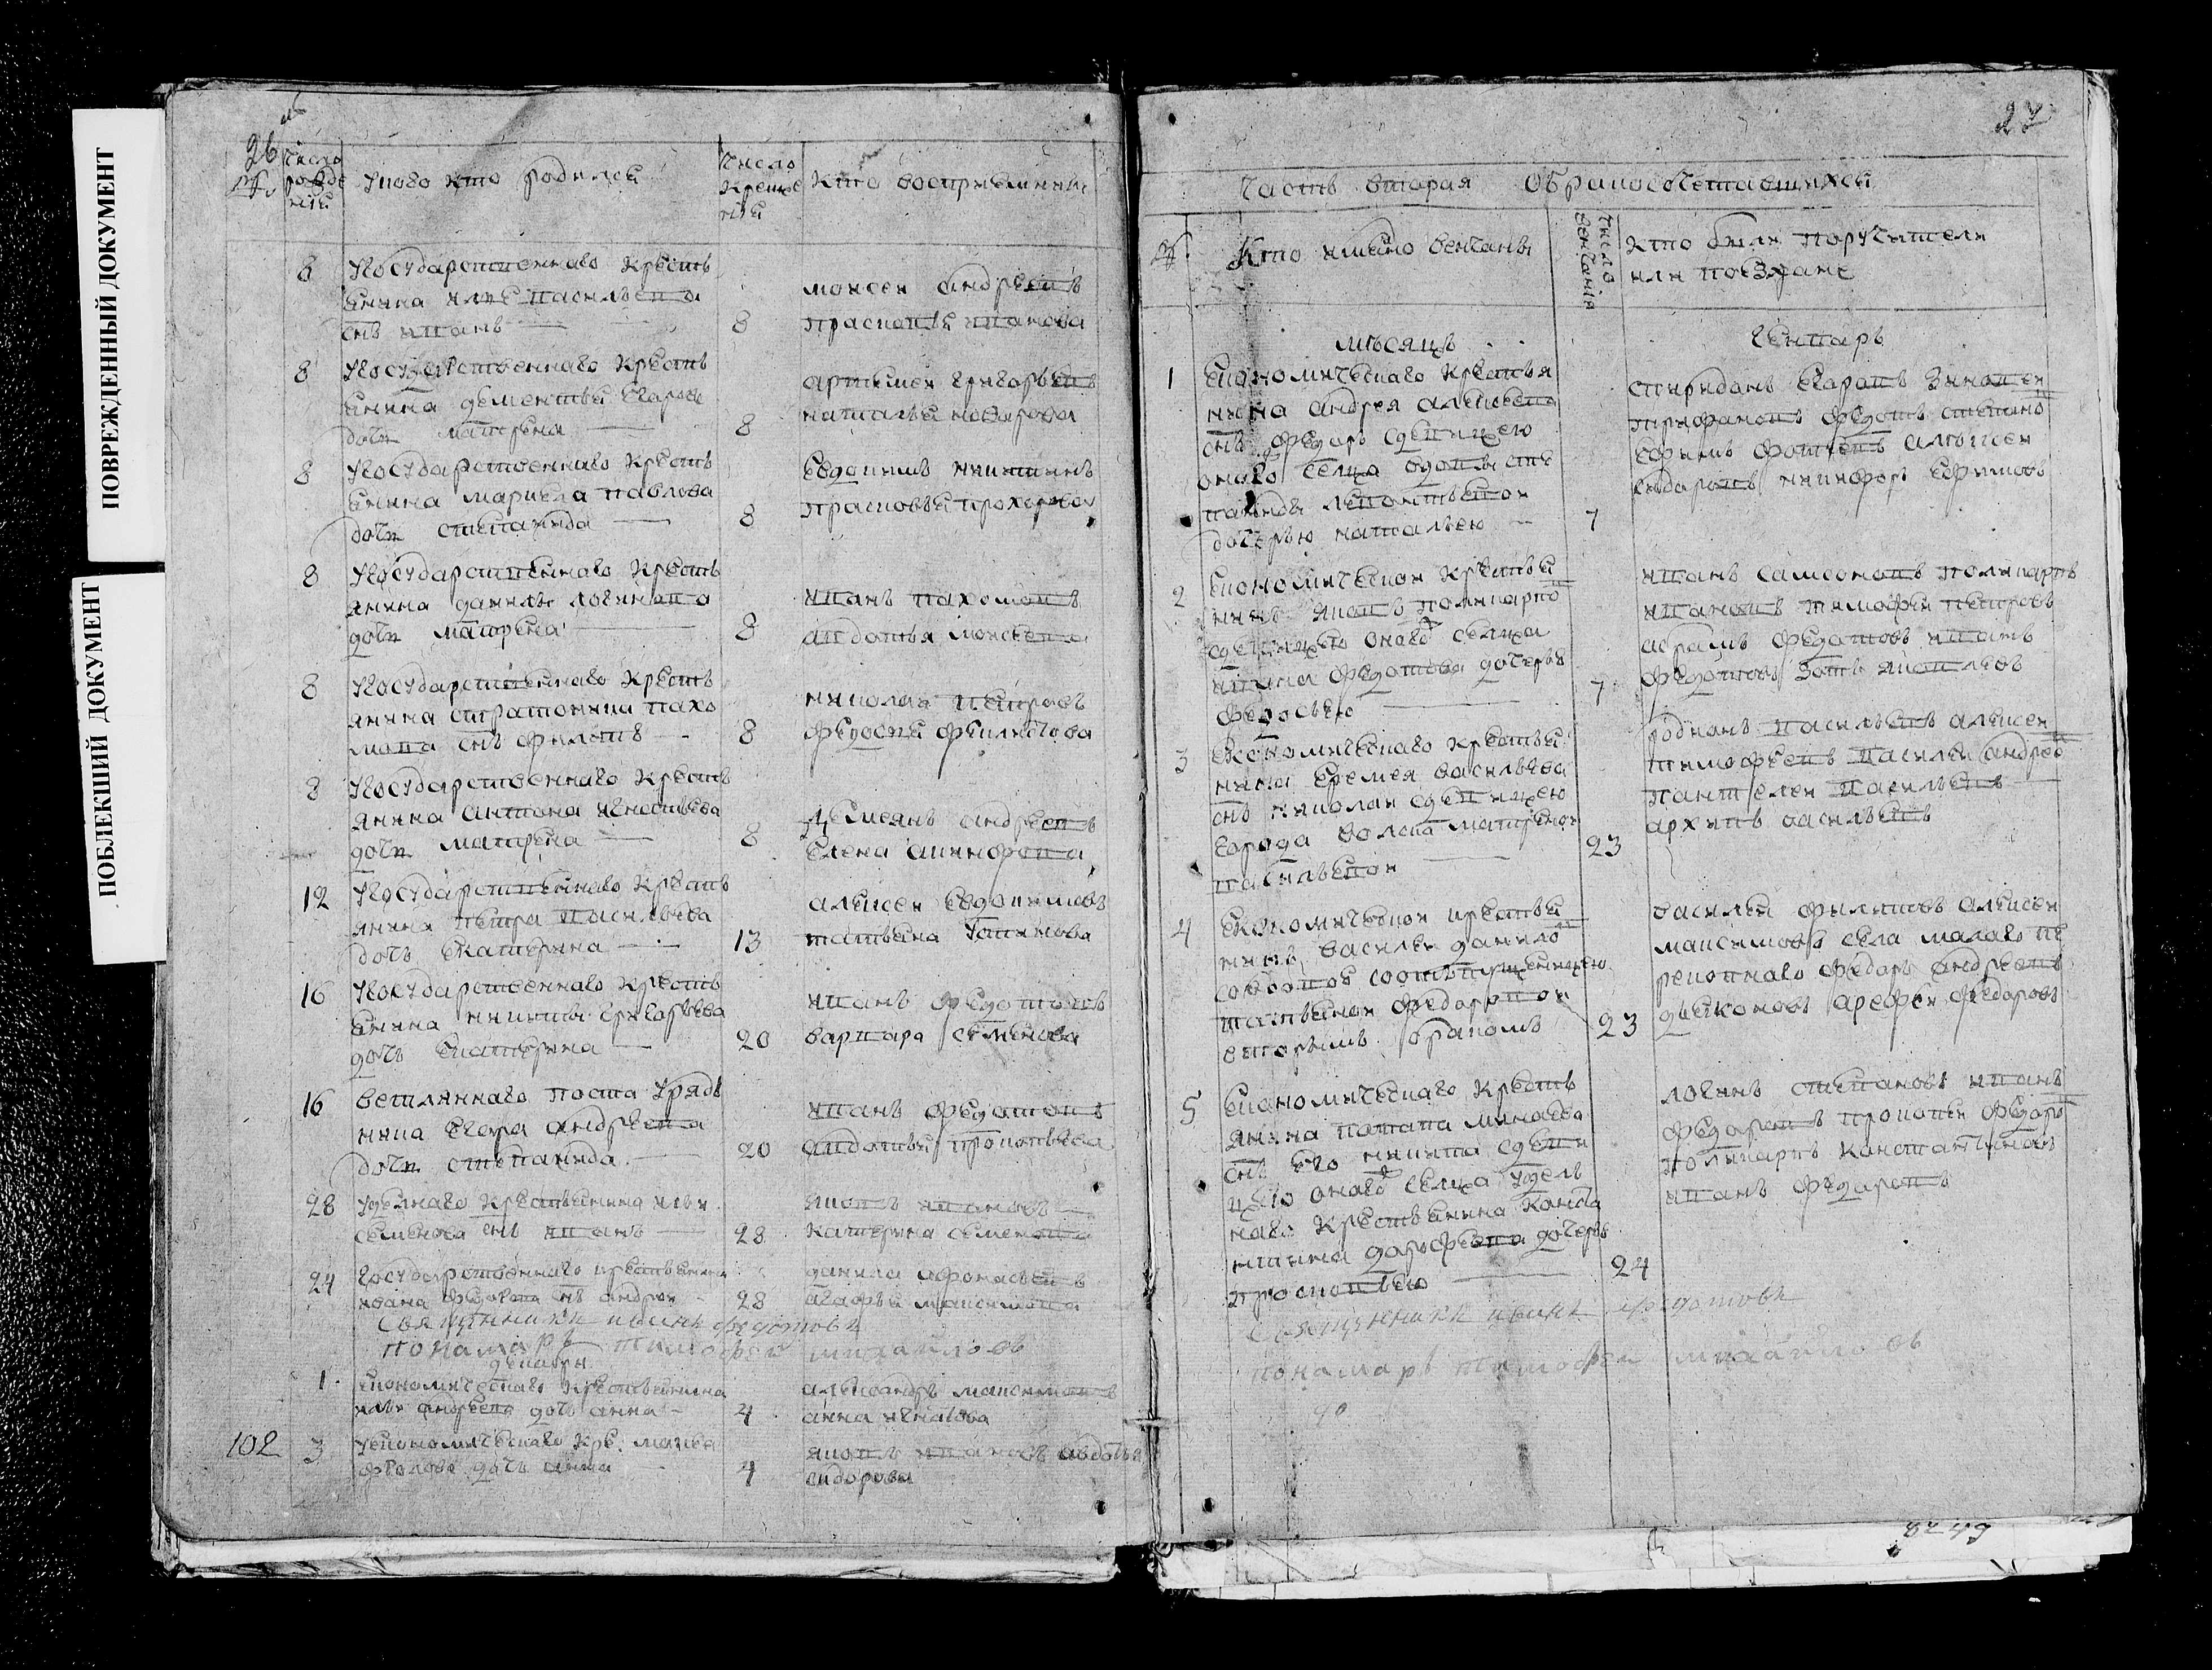 ПОВРЕЖДЕННЫЙ ДОКУМЕНТ
ПОБЛЕКШИЙ ДОКУМЕНТ
26
№
Число рожде нія
У кого кто родился
Число Креще нія
Кто восприемники
8 Угосударственнаго Кресть
янина ильи василева
снъ иванъ 8
моисеи андреевъ
прасковя иванова
8 Угосударственнаго Кресть
янина дементья Егарова
дочь матрена 8
артемеи григорьевъ
наталья назарова
8 Угосударственнаго Кресть
янина маркела павлова
дочь степанида 8
Евдокимъ никитинъ
прасковья прохорова
8 Угосударственнаго Кресть
янина данилы логинава
дочь матрена 8
иванъ пахомовъ
авдотья моисеева
8 Угосударственнаго Кресть
янина стратоника пахо
мова снъ филипъ 8
николаи петровъ
федосья
8 Угосударственнаго Кресть
янина антона игнатьева
дочь матрена 8
Демьянъ андреевъ
Елена
12 Угосударственнаго Кресть
янина петра василева
дочь екатерина 13
алексеи Евдокимовъ
татьяна
16 Угосударственнаго Кресть
янина никиты григорьева
дочь Екатерина 20
иванъ федотовъ
варвара семенова
16 ветляннаго поста Уряд
ника Егора андреева
дочь степанида 20
иванъ федотовъ
авдотья прокопьева
28 Удельнаго Крестьянина ильи
семенова снъ иванъ 28
яковъ ивановъ
катерина семенова
24 государственнаго крестьянина
ивана федотова снъ андреи 28
данила афонасьевъ
агафья максимова
священникъ иванъ федотовъ
понамаръ тимофеи михаиловъ
декабря
1 Економическаго Крестьянина
ильи андреева дочь анна 4
александръ максимовъ
анна игнатова
102 3 Уекономическаго Кре. матвея
фролова дочь анна 4
яковъ ивановъ авдотья
сидорова
27
Часть вторая О бракосочетавшихся
№
Кто имено венчаны
Число венчанія
кто были поручители
или поезжане
мѣсяцъ генварь
1 Економическаго Крестья
нина андрея алексеева
снъ федоръ сдевицею
онаго селца
леонтьевои
дочерью натальею 7
спиридонъ Егаровъ
трифановъ федотъ степано
Ефимъ алексеи
никифоръ Ефимовъ
2 Економическои Крестья
нинъ яковъ поликарпо
сдевицею онаго селца
ивана федотова дочерью
федосьею 7
иванъ самсоновъ поликарпъ
ивановъ тимофеи петровъ
абрамъ федотовъ иванъ
федотовъ
3 Економическаго Крестья
нина Еремея васильева
снъ николаи сдевицею
города волска матреною
васильевои 23
родионъ васильевъ алексеи
тимофеевъ василеи андрео
пантелеи васильевъ
архипъ васильевъ
4 Економическои крестья
нинъ василеи данило
татьянои федоровои
вторымъ бракомъ 23
василеи филиповъ алексеи
максимовъ села малаго пе
рекопнаго федоръ андреевъ
дьяконовъ арефеи федоровъ
5 Економическаго Кресть
янина потапа минаева
снъ его никита сдеви
цею онаго селца Удель
наго Крестьянина Конста
нтина дочерью
прасковьею 24
логинъ степановъ иванъ
федоровъ прокопеи федоро
поликарпъ Константиновъ
иванъ федаровъ
священникъ иванъ федотовъ
понамаръ тимофеи михаиловъ